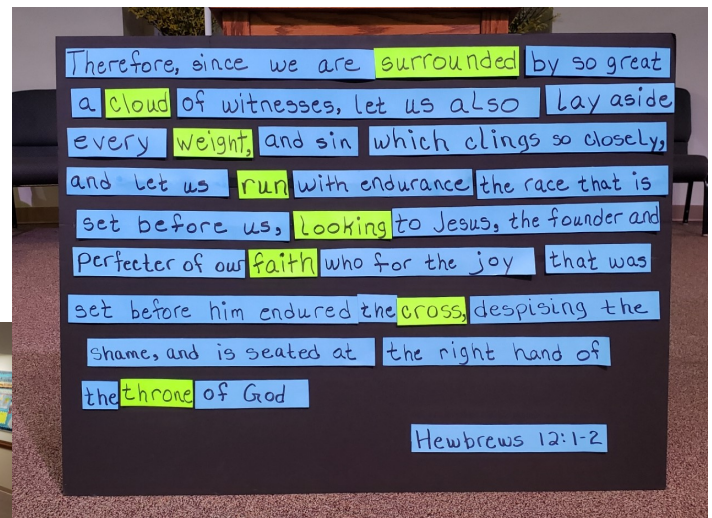 Therefore, since we are surrounded by so great
a cloud of witnesses, let us aLso Lay aside
every weight, and sin which clings so closely,
and Let us run with endurance the race that is
set before us, Looking to Jesus, the founder and
Perfecter of our faith who for the joy that was
set before him endured the cross, despising the
shame, and is seated at the right hand of
the throne of God
Hewbrews 12:1-2